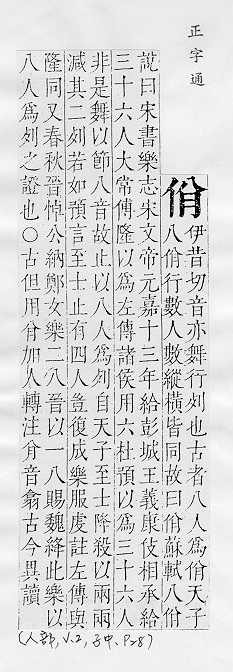 正字通
佾
伊昔切音亦舞行列也古者八人為佾天子
八佾行數人數縱橫皆同故曰佾蘇軾八佾
說曰宋書樂志宋文帝元嘉十三年給彭城王義康伎相承給
三十六人大常傅隆以為左傳諸侯用六杜預以為三十六人
非是舞以節八音故止以八人為列自天子至士降殺以兩兩
減其二列若如預言至士止有四人豈復成樂服虔註左傳與
隆同又春秋晉悼公納鄭女樂二八晉以一八賜魏絳此樂以
八人為列之證也○古但用佾加人轉注𠈅音翕古今異讀
(人部, V.2, 子中, P.28)